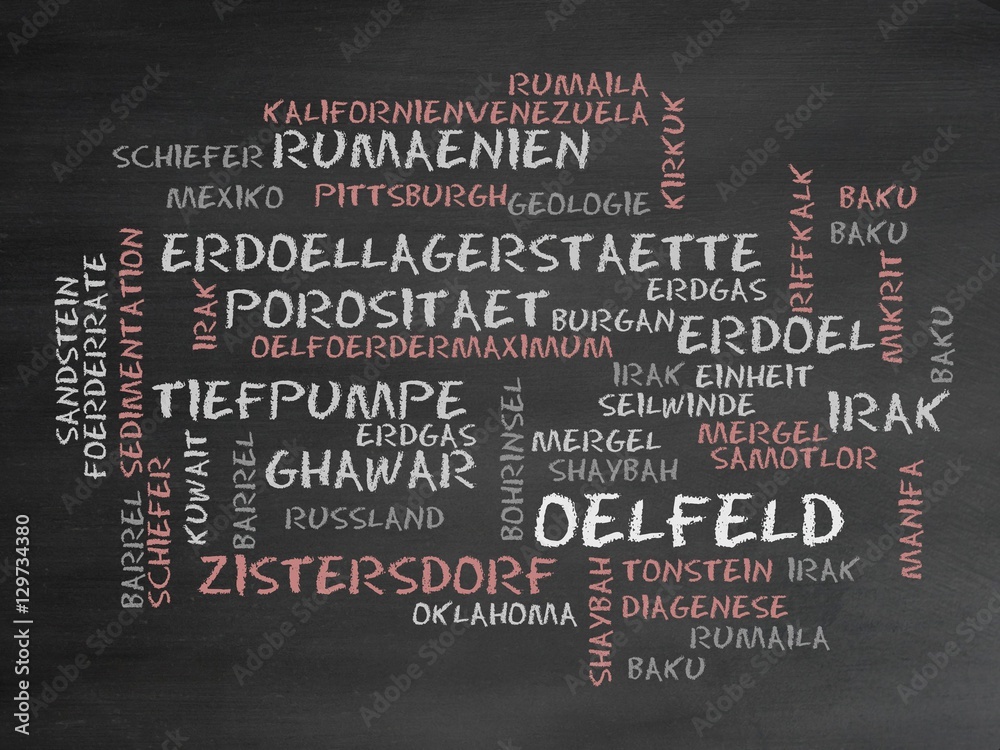 RUMAILA
KALIFORNIENVENEZUELA
KIRKUK
SCHIEFER
RUMAENIEN
MEXIKO
PITTSBURGH
GEOLOGIE
RIFFKALK
BAKU
BAKU
ERDOELLAGERSTAETTE
SANDSTEIN
FOERDERRATE
SEDIMENTATION
IRAK
ERDGAS
POROSITAET
BURGAN
ERDOEL
MIKRIT
BAKU
OELFOERDERMAXIMUM
IRAK
EINHEIT
TIEFPUMPE
SEILWINDE
IRAK
BOHRINSEL
ERDGAS
MERGEL
MERGEL
KUWAIT
BARREL
GHAWAR
SHAYBAH
SAMOTLOR
MANIFA
BARREL
SCHIEFER
RUSSLAND
OELFELD
ZISTERSDORF
SHAYBAH
TONSTEIN
IRAK
OKLAHOMA
DIAGENESE
RUMAILA
BAKU
Adobe Stock | #129734380
Adobe Stock